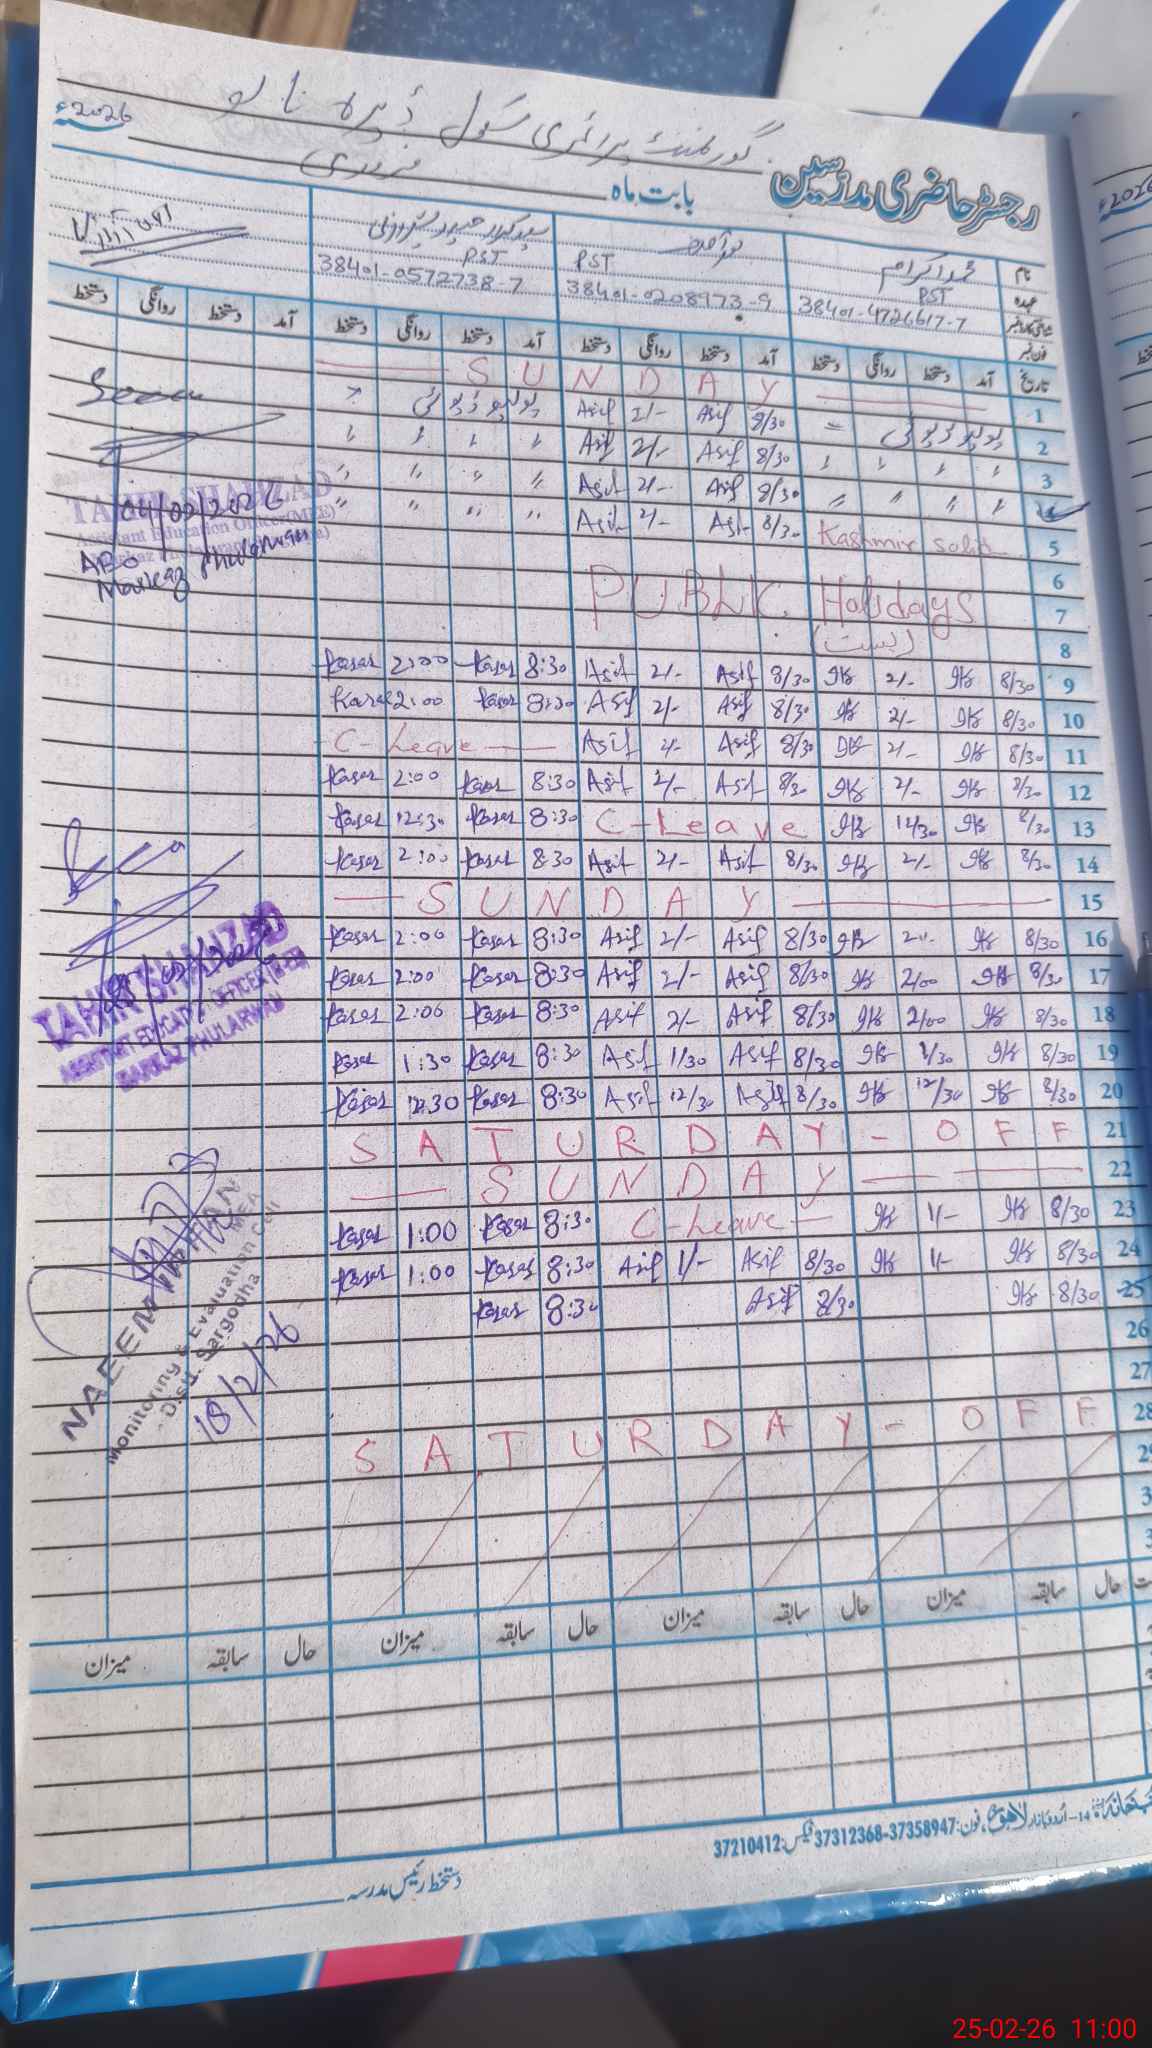 گورنمنٹ پرائمری سکول ڈیرہ نانو
رجسٹر حاضری مدرسین
بابت ماہ فروری 2026ء
نام محمد اکرام نوید آصف
عہدہ PST PST PST
شناختی کارڈ نمبر 38401-4726617-7 38401-0208973-9 38401-0572738-7
فون نمبر
تاریخ آمد دستخط روانگی دستخط آمد دستخط روانگی دستخط آمد دستخط روانگی دستخط آمد دستخط روانگی دستخط
1 SUNDAY
2 پولیو ڈیوٹی = 8/30 Asif 2/- Asif پولیو ڈیوٹی
3 8/30 Asif 2/- Asif
4 8/30 Asif 2/- Asif
5 Kashmir 8/30 Asif 2/- Asif
6
7 PUBLIC Holidays
8 (بسنت)
9 8/30 2/- 8/30 Asif 2/- Asif 8:30 Kasar 2:00 Kasar
10 8/30 2/- 8/30 Asif 2/- Asif 8:30 Kasar 2:00 Kasar
11 8/30 2/- 8/30 Asif 2/- Asif C-Leave
12 8/30 2/- 8/30 Asif 2/- Asif 8:30 Kasar 2:00 Kasar
13 8/30 12/30 C-Leave 8:30 Kasar 12:30 Kasar
14 8/30 2/- 8/30 Asif 2/- Asif 8:30 Kasar 2:00 Kasar
15 SUNDAY
16 8/30 2/- 8/30 Asif 2/- Asif 8:30 Kasar 2:00 Kasar
17 8/30 2/00 8/30 Asif 2/- Asif 8:30 Kasar 2:00 Kasar
18 8/30 2/00 8/30 Asif 2/- Asif 8:30 Kasar 2:00 Kasar
19 8/30 1/30 8/30 Asif 1/30 Asif 8:30 Kasar 1:30 Kasar
20 8/30 12/30 8/30 Asif 12/30 Asif 8:30 Kasar 12:30 Kasar
21 SATURDAY - OFF
22 SUNDAY
23 8/30 1/- C-Leave 8:30 Kasar 1:00 Kasar
24 8/30 1/- 8/30 Asif 1/- Asif 8:30 Kasar 1:00 Kasar
25 8/30 8/30 Asif 8:30 Kasar
26
27
28 SATURDAY - OFF
حال سابقہ میزان حال سابقہ میزان حال سابقہ میزان حال سابقہ میزان
TAHIR SHAHZAD
Assistant Education Officer (MEE)
04/02/2026
AEO
Markaz Phularwan
TAHIR SHAHZAD
ASSISTANT EDUCATION OFFICER
MARKAZ PHULARWAN
NAEEM
MEA
Monitoring & Evaluation Cell
Distt. Sargodha
18/2/26
اردو بازار لاہور، فون: 37358947-37312368 فیکس: 37210412
دستخط رئیس مدرسہ
2026ء
25-02-26 11:00